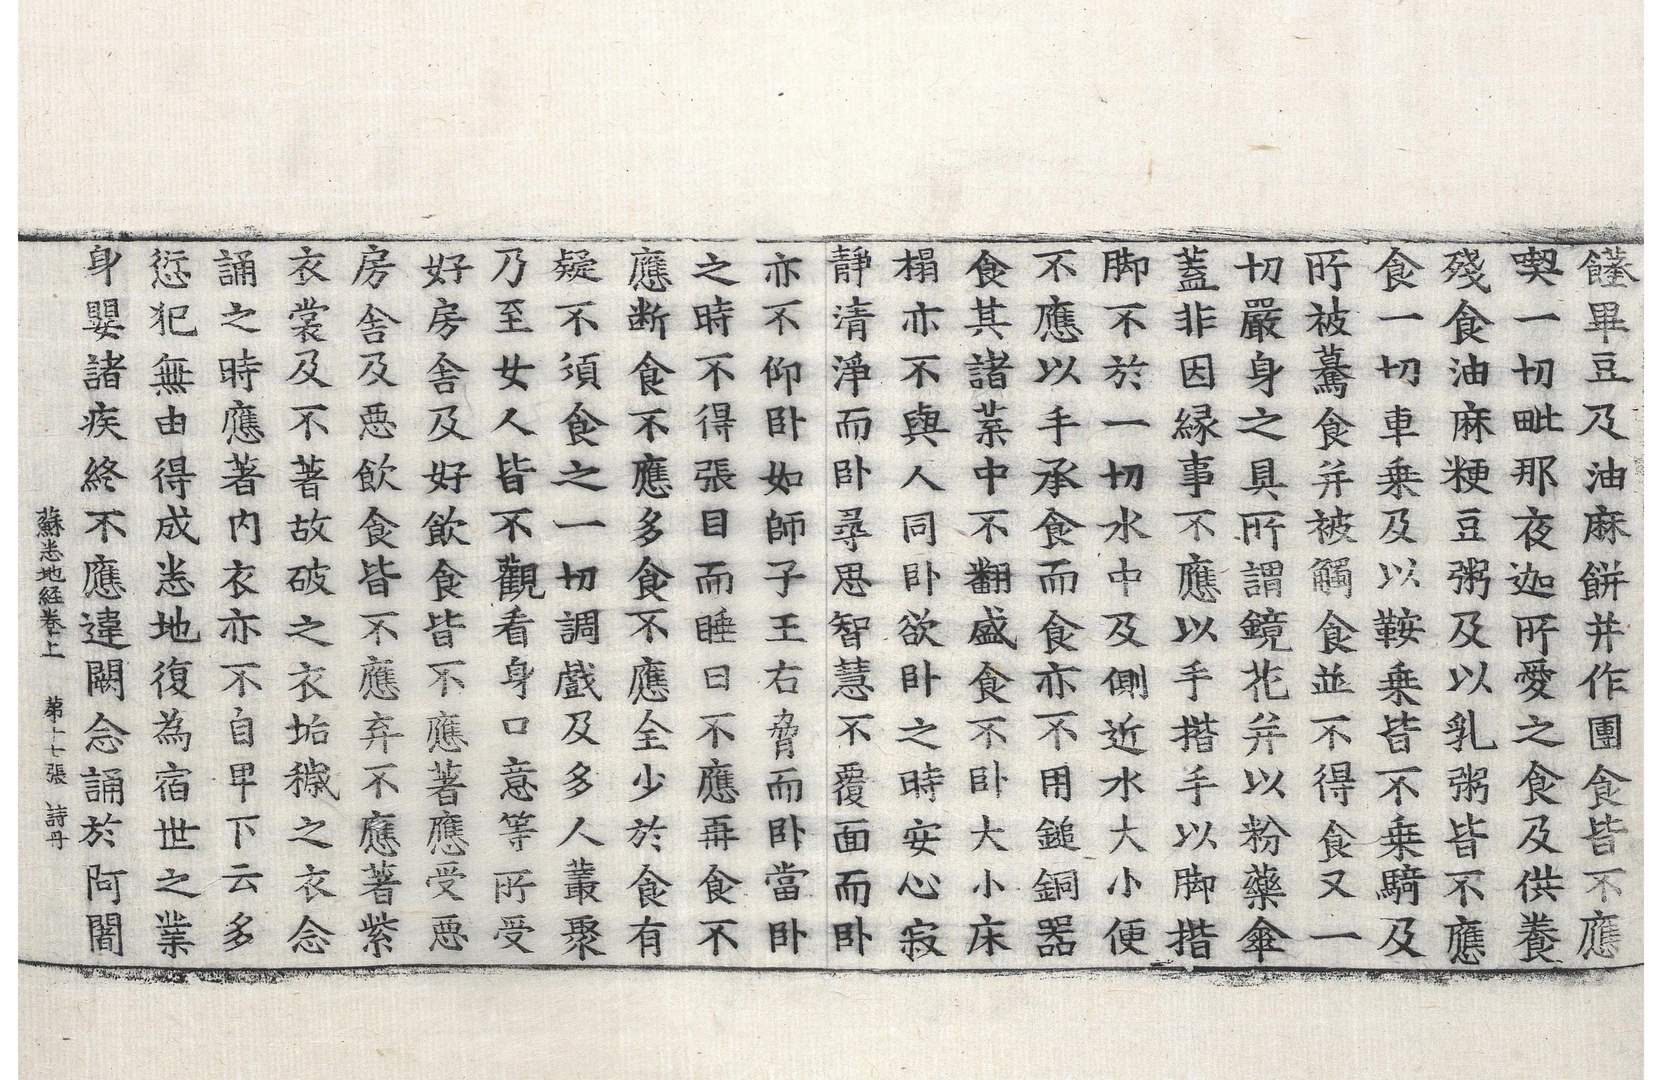 饉畢豆及油麻餅并作團食皆不應
喫一切毗那夜迦所愛之食及供養
殘食油麻粳豆粥及以乳粥皆不應
食一切車乗及以鞍乗皆不乗騎及
所被驀食并被觸食並不得食又一
切嚴身之具所謂鏡花并以粉藥傘
蓋非因縁事不應以手揩手以脚揩
脚不於一切水中及側近水大小便
不應以手承食而食亦不用鎚銅器
食其諸葉中不翻盛食不卧大小床
榻亦不與人同卧欲卧之時安心寂
靜清淨而卧尋思智慧不覆面而卧
亦不仰卧如師子王右脅而卧當卧
之時不得張目而睡日不應再食不
應断食不應多食不應全少於食有
疑不須食之一切調戲及多人叢聚
乃至女人皆不觀看身口意等所受
好房舍及好飲食皆不應著應受惡
房舍及惡飲食皆不應弃不應著紫
衣裳及不著故破之衣垢穢之衣念
誦之時應著內衣亦不自卑下云多
愆犯無由得成悉地復為宿世之業
身嬰諸疾終不應違闕念誦於阿闍
蘇悉地経卷上 第十七張 詩丹